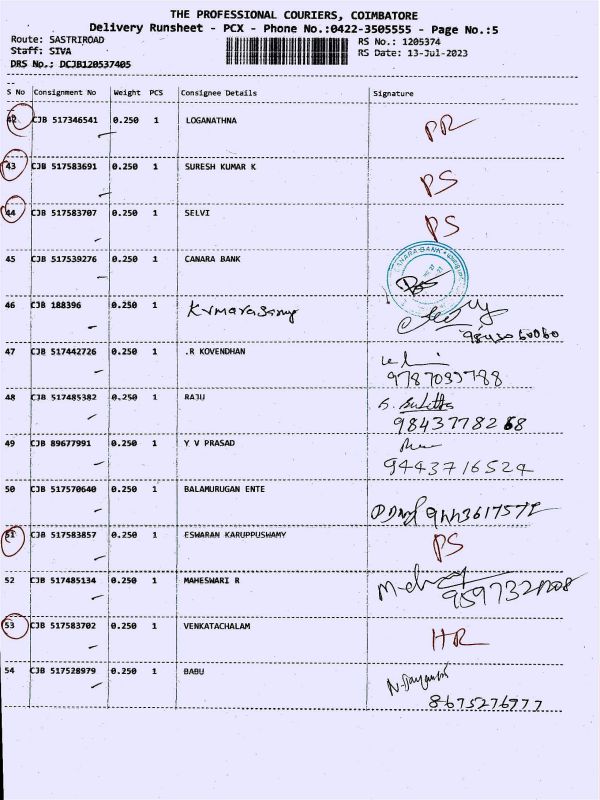 THE PROFESSIONAL COURIERS, COIMBATORE
Delivery Runsheet - PCX - Phone No.:0422-3505555 - Page No.:5
Route: SASTRIROAD RS No.: 1205374
Staff: SIVA RS Date: 13-Jul-2023
DRS No.: DCJB120537405
S No Consignment No Weight PCS Consignee Details Signature
42 CJB 517346541 0.250 1 LOGANATHNA PR
43 CJB 517583691 0.250 1 SURESH KUMAR K PS
44 CJB 517583707 0.250 1 SELVI PS
45 CJB 517539276 0.250 1 CANARA BANK CANARA BANK
46 CJB 188396 0.250 1 Kumarasamy
47 CJB 517442726 0.250 1 .R KOVENDHAN
9787035788
48 CJB 517485382 0.250 1 RAJU
9843778268
49 CJB 89677991 0.250 1 Y V PRASAD
9443716524
50 CJB 517570640 0.250 1 BALAMURUGAN ENTE
51 CJB 517583857 0.250 1 ESWARAN KARUPPUSWAMY PS
52 CJB 517485134 0.250 1 MAHESWARI R
53 CJB 517583702 0.250 1 VENKATACHALAM HR
54 CJB 517528979 0.250 1 BABU
8675276777